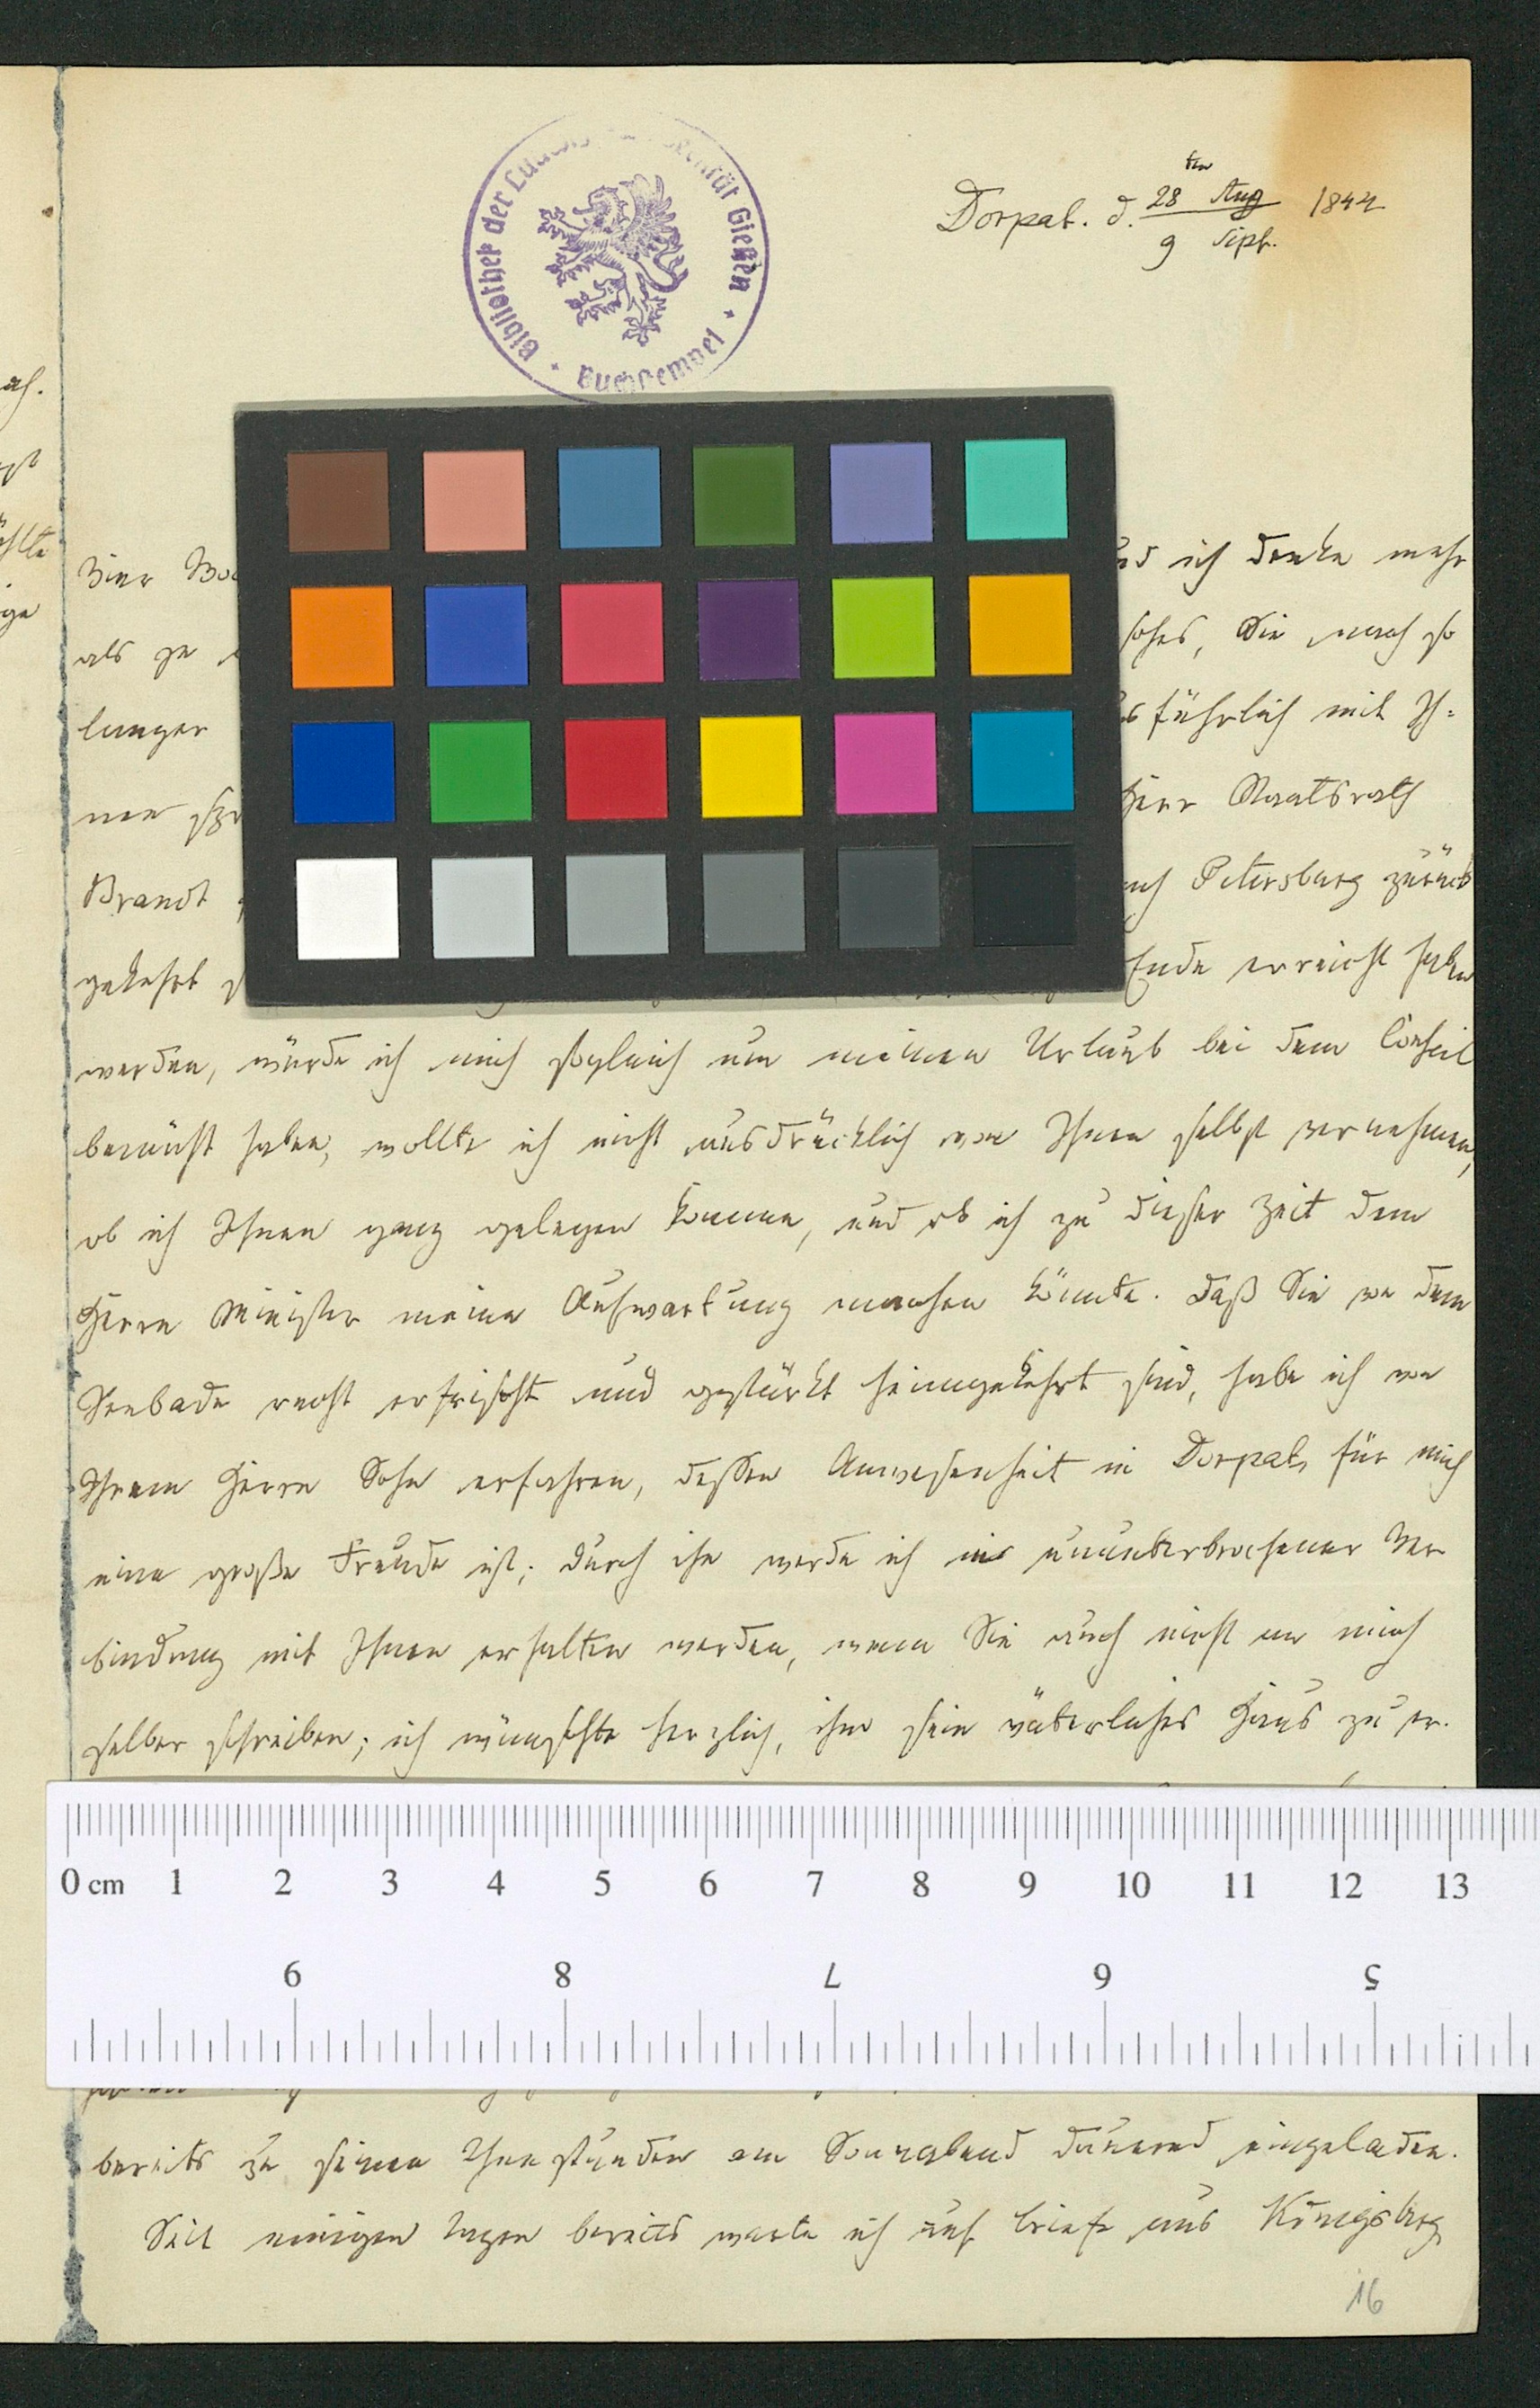 Bibliothek der Ludwigs-Universität Gießen
Buchstempel
Dorpat. d. 28ten Aug / 9 Sept. 1844
Vier Wo
und ich denke mehr
als je
Sie nach so
langer
ausführlich mit Ih=
nen
Herr Staatsrath
Brandt
nach Petersburg zurück
gekehrt
Ende erreicht haben
werden, würde ich mich sogleich um meinen Urlaub bei dem Conseil
bemüht haben, wollte ich nicht ausdrücklich von Ihnen selbst vernehmen,
ob ich Ihnen ganz gelegen komme, und ob ich zu dieser Zeit dem
Herrn Minister meine Aufwartung machen könnte. Daß Sie von dem
Seebade recht erfrischt und gestärkt heimgekehrt sind, habe ich von
Ihrem Herrn Sohn erfahren, dessen Anwesenheit in Dorpat für mich
eine große Freude ist; durch ihn werde ich in ununterbrochener Ver
bindung mit Ihnen erhalten werden, wenn Sie auch nicht an mich
selber schreiben; ich wünschte herzlich, ihm sein väterliches Haus zu er-
0 cm 1 2 3 4 5 6 7 8 9 10 11 12 13
9 8 7 6 5
bereits zu seinen Theestunden am Sonnabend dauernd eingeladen.
Seit einigen Tagen bereits warte ich auf Briefe aus Königsberg
16